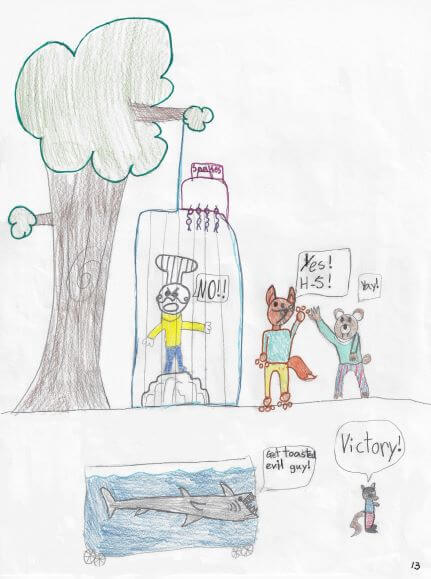 Snakes
NO!!
Yes!
H-5!
Yay!
Get toasted
evil guy!
Victory!
13